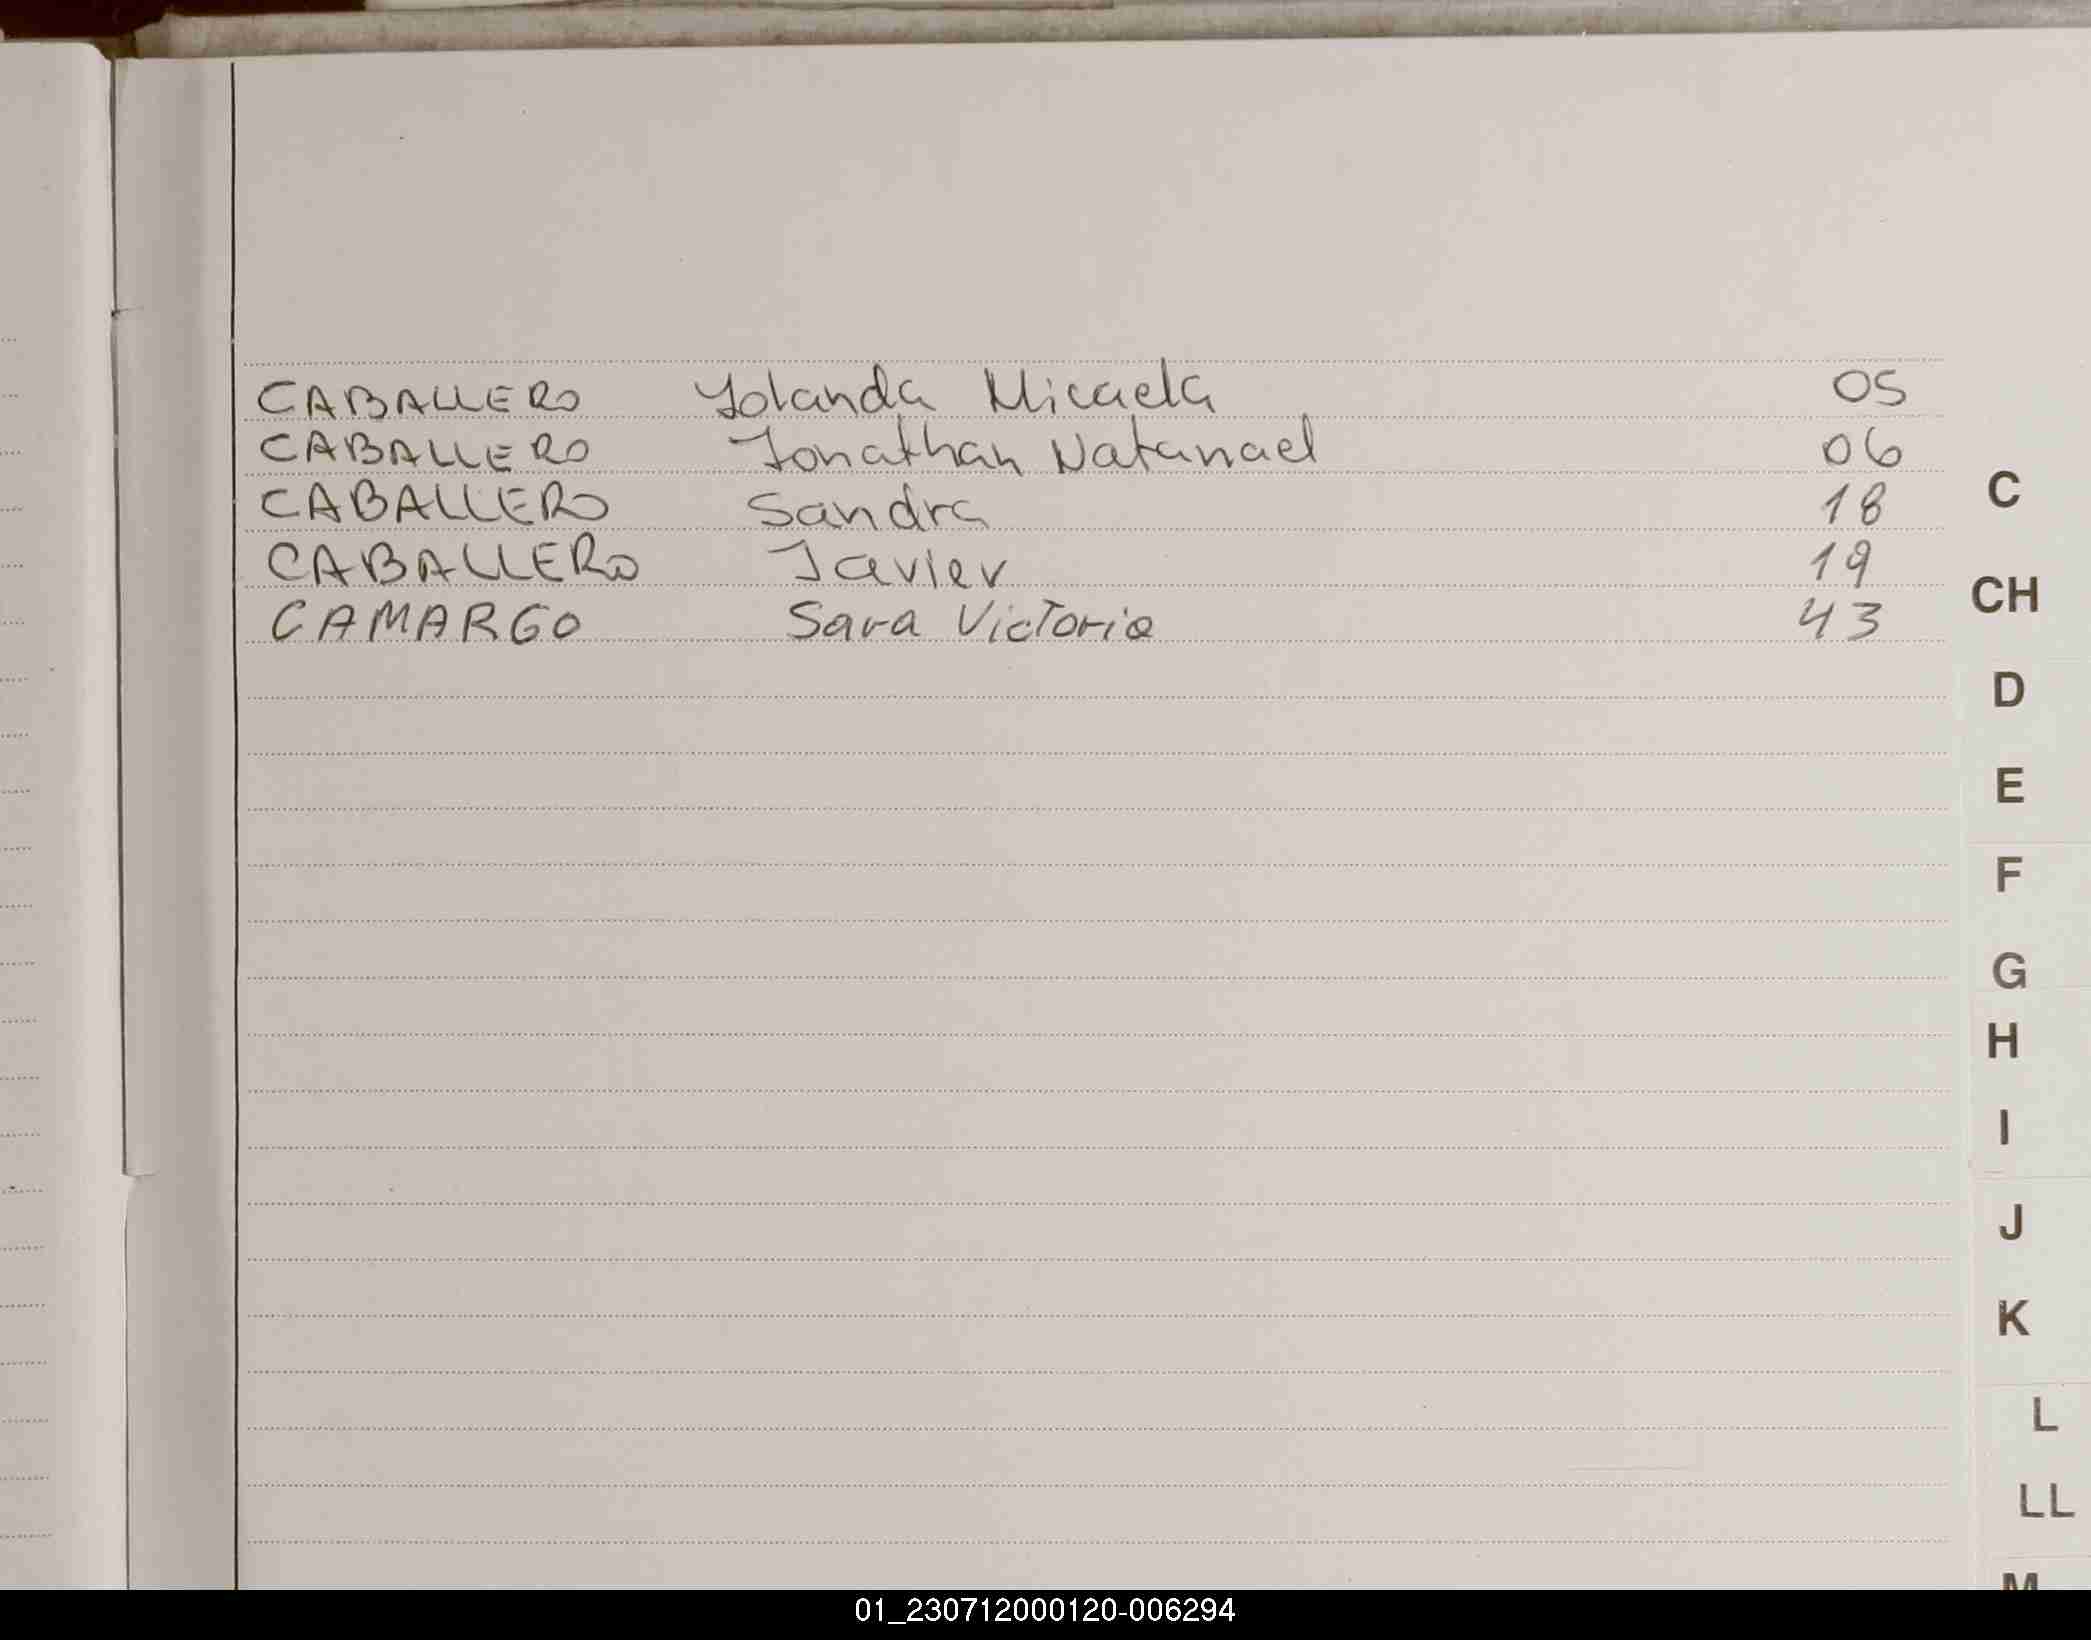 CABALLERO Yolanda Micaela 05
CABALLERO Jonathan Natanael 06
CABALLERO Sandra 18
CABALLERO Javier 19
CAMARGO Sara Victoria 43
C
CH
D
E
F
G
H
I
J
K
L
LL
M
01_230712000120-006294